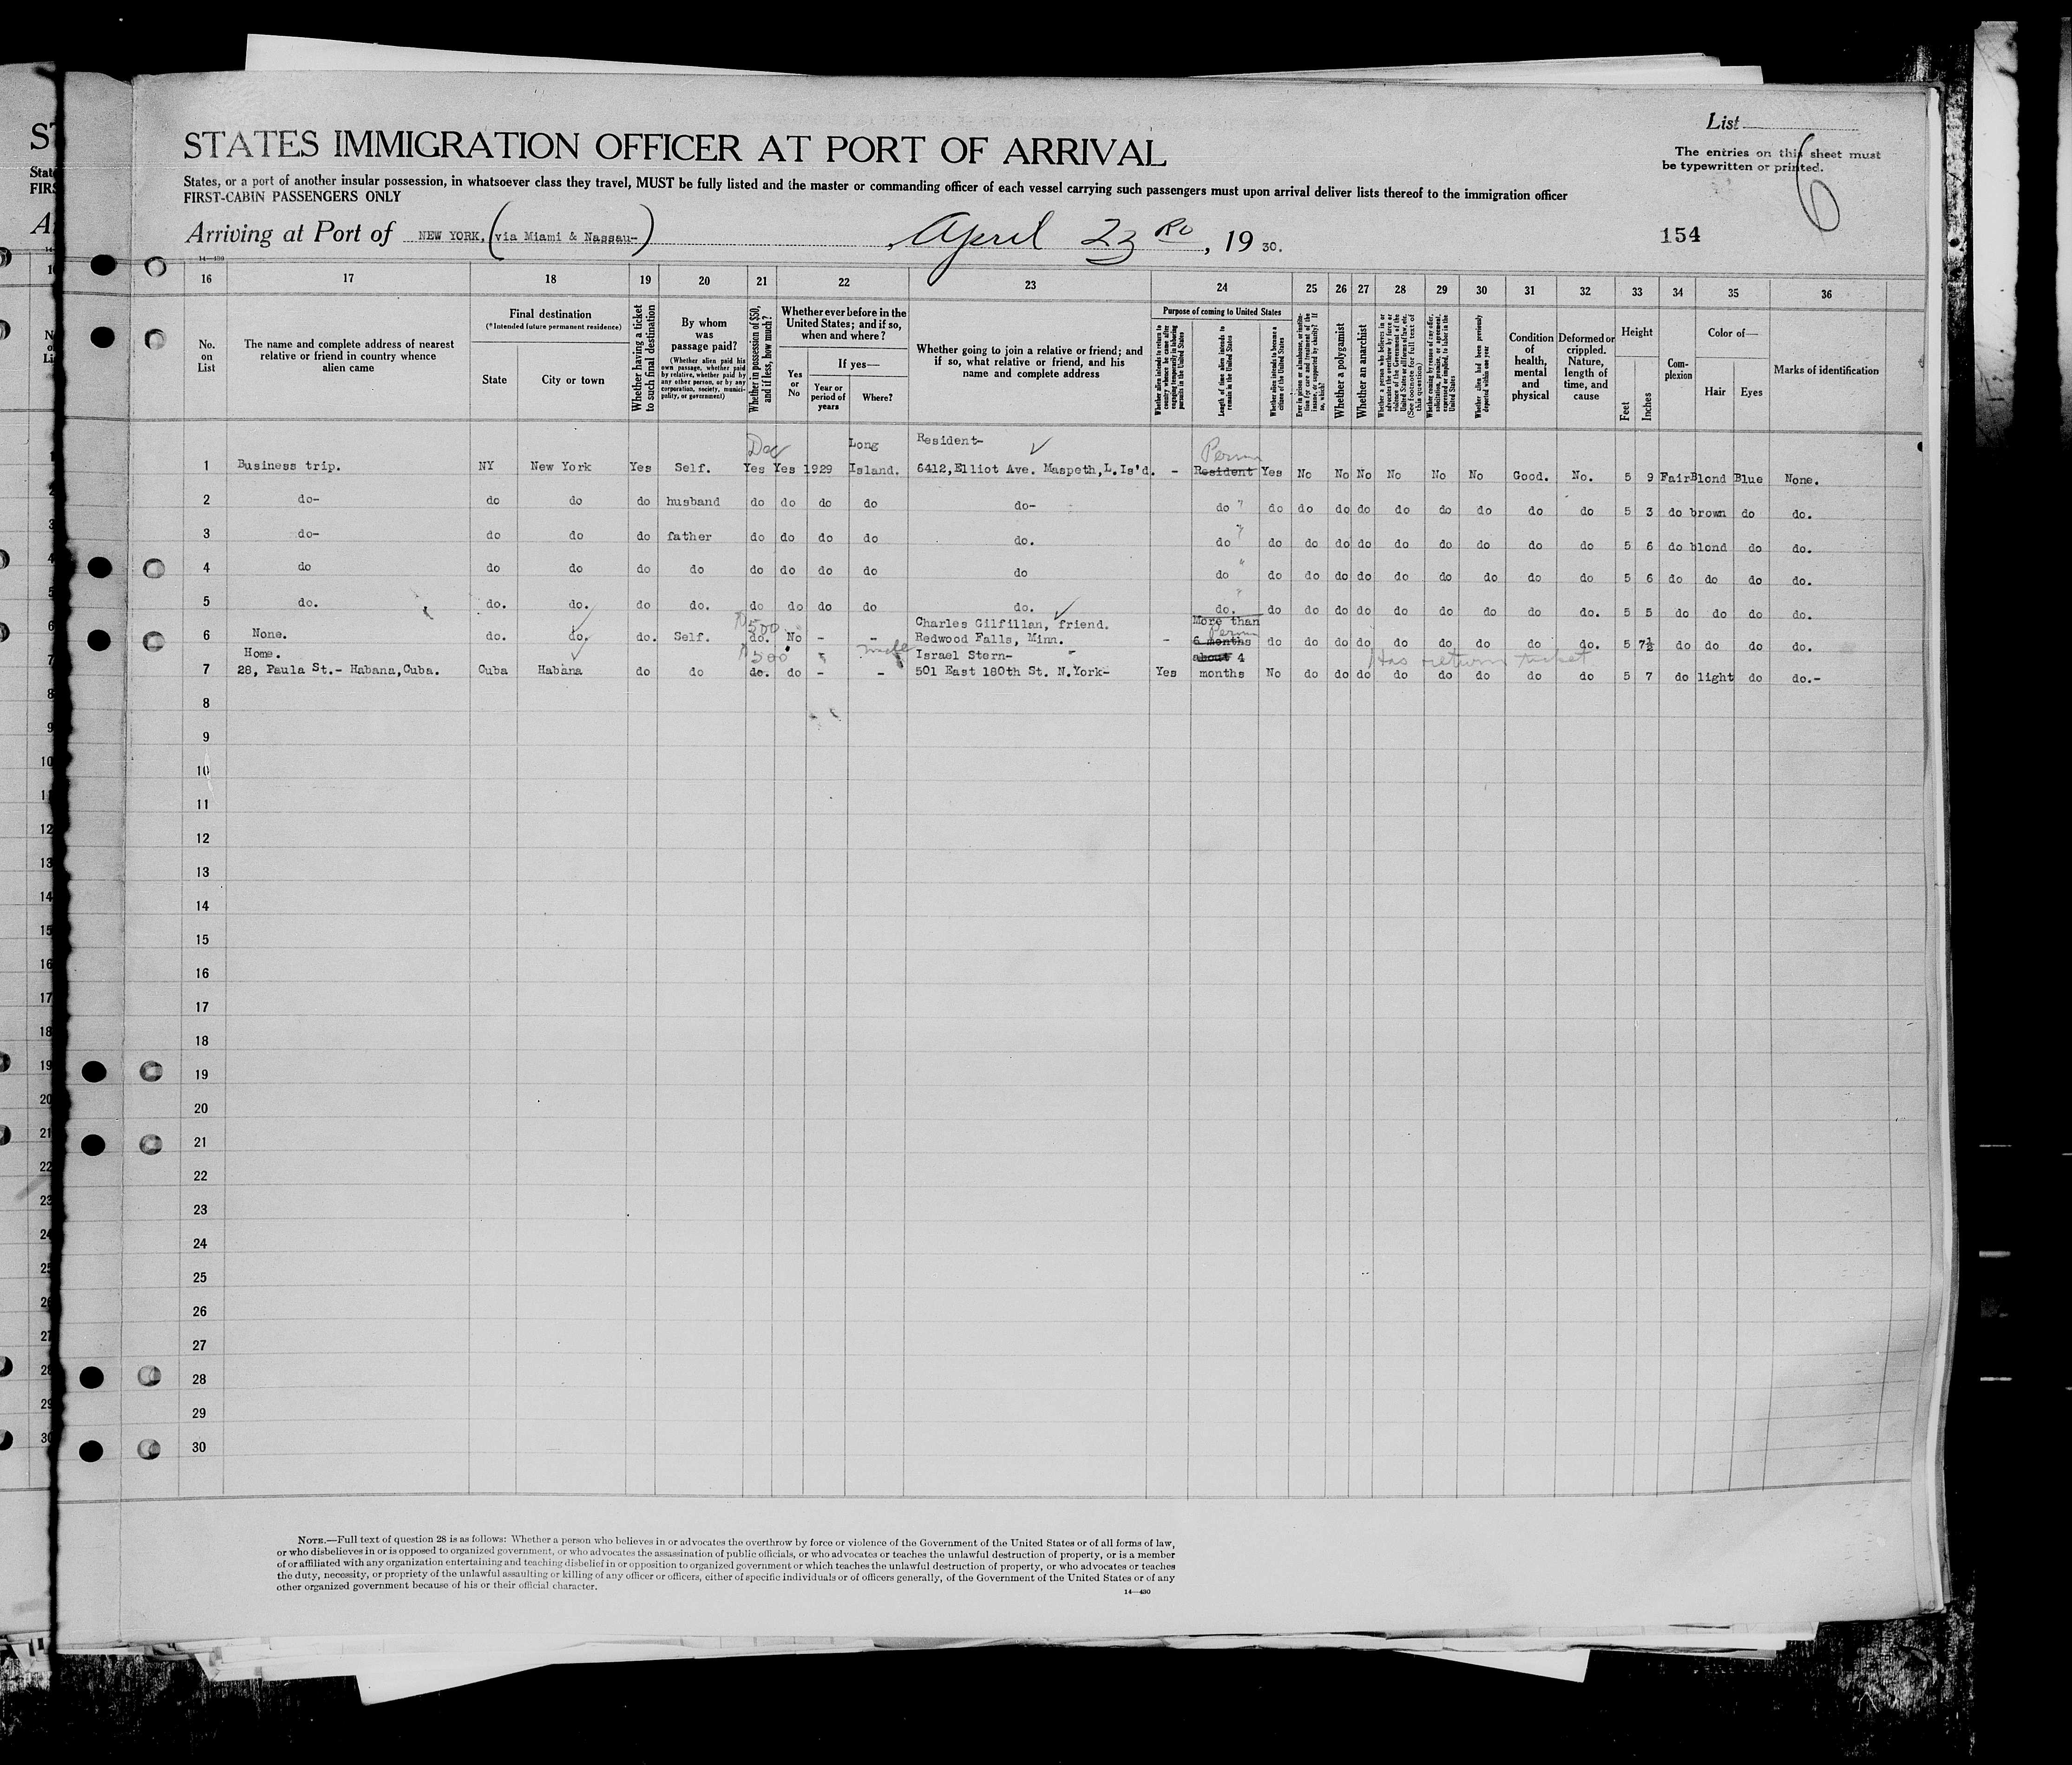 List
The entries on this sheet must
be typewritten or printed.
6
STATES IMMIGRATION OFFICER AT PORT OF ARRIVAL
States, or a port of another insular possession, in whatsoever class they travel, MUST be fully listed and the master or commanding officer of each vessel carrying such passengers must upon arrival deliver lists thereof to the immigration officer
FIRST-CABIN PASSENGERS ONLY
Arriving at Port of NEW YORK, (via Miami & Nassau-) April 23 RD, 19 30.
154
14-430
16 17 18 19 20 21 22 23 24 25 26 27 28 29 30 31 32 33 34 35 36
No. on List
The name and complete address of nearest relative or friend in country whence alien came
Final destination
(*Intended future permanent residence)
State
City or town
Whether having a ticket to such final destination
By whom was passage paid?
(Whether alien paid his own passage, whether paid by relative, whether paid by any other person, or by any corporation, society, municipality, or government)
Whether in possession of $50, and if less, how much?
Whether ever before in the United States; and if so, when and where?
Yes or No
If yes—
Year or period of years
Where?
Whether going to join a relative or friend; and if so, what relative or friend, and his name and complete address
Purpose of coming to United States
Whether alien intends to return to country whence he came after engaging temporarily in laboring pursuits in the United States
Length of time alien intends to remain in the United States
Whether alien intends to become a citizen of the United States
Ever in prison or almshouse, or institution for care and treatment of the insane, or supported by charity? If so, which?
Whether a polygamist
Whether an anarchist
Whether a person who believes in or advocates the overthrow by force or violence of the Government of the United States or all forms of law, etc. (See footnote for full text of this question)
Whether coming by reason of any offer, solicitation, promise, or agreement, expressed or implied, to labor in the United States
Whether alien had been previously deported within one year
Condition of health, mental and physical
Deformed or crippled. Nature, length of time, and cause
Height
Feet
Inches
Complexion
Color of—
Hair
Eyes
Marks of identification
Dec Long Resident- Perm
1 Business trip. NY New York Yes Self. Yes Yes 1929 Island. 6412,Elliot Ave. Maspeth,L.Is'd. - Resident Yes No No No No No No Good. No. 5 9 Fair Blond Blue None.
2 do- do do do husband do do do do do- do " do do do do do do do do do 5 3 do brown do do.
3 do- do do do father do do do do do. do " do do do do do do do do do 5 6 do blond do do.
4 do do do do do do do do do do do " do do do do do do do do do 5 6 do do do do.
5 do. do. do. do do. do do do do do. do. " do do do do do do do do do. 5 5 do do do do.
$500 Charles Gilfillan, friend. More than
Perm
6 None. do. do. do. Self. do. No - - Redwood Falls, Minn. - 6 months do do do do do do do do do. 5 7½ do do do do.
Home. $500 uncle Israel Stern- about 4 Has return ticket
7 28, Paula St.- Habana,Cuba. Cuba Habana do do do. do - - 501 East 180th St. N.York- Yes months No do do do do do do do do 5 7 do light do do.-
8
9
10
11
12
13
14
15
16
17
18
19
20
21
22
23
24
25
26
27
28
29
30
NOTE.—Full text of question 28 is as follows: Whether a person who believes in or advocates the overthrow by force or violence of the Government of the United States or of all forms of law,
or who disbelieves in or is opposed to organized government, or who advocates the assassination of public officials, or who advocates or teaches the unlawful destruction of property, or is a member
of or affiliated with any organization entertaining and teaching disbelief in or opposition to organized government or which teaches the unlawful destruction of property, or who advocates or teaches
the duty, necessity, or propriety of the unlawful assaulting or killing of any officer or officers, either of specific individuals or of officers generally, of the Government of the United States or of any
other organized government because of his or their official character.
14-430